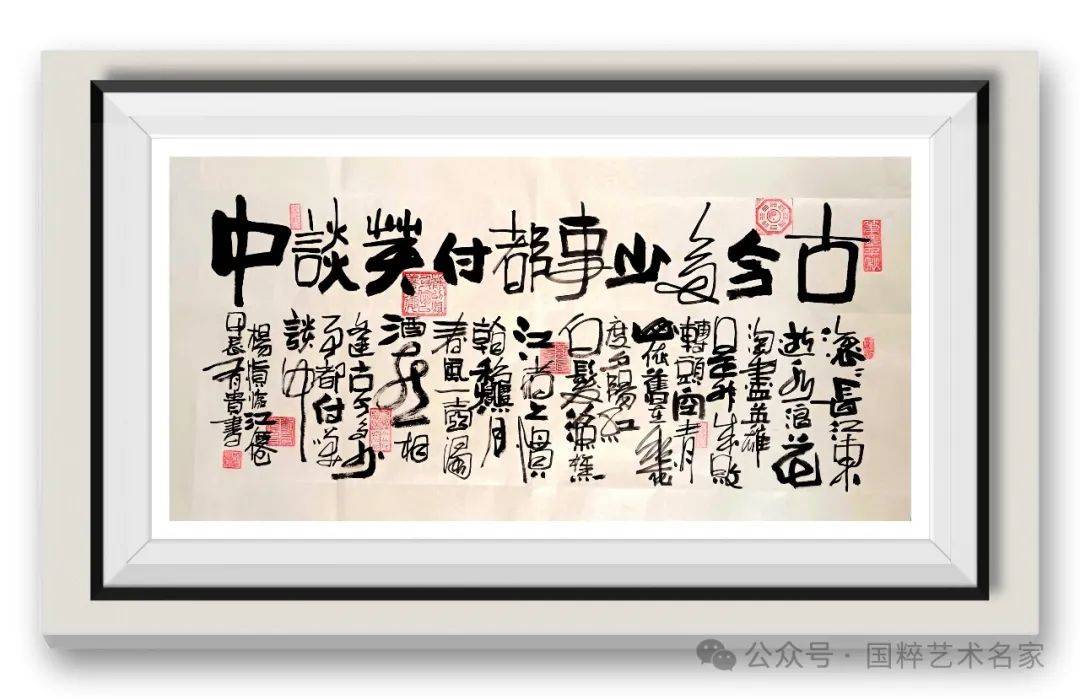 古今多少事都付笑談中
滾滾長江東
逝水浪花
淘盡英雄
是非成敗
轉頭空青
山依舊在幾
度夕陽紅
白髮漁樵
江渚上慣
秋月
春風一壺濁
酒喜相
逢古今多少
事都付笑
談中
楊慎臨江仙
甲辰有貴書
公众号 · 国粹艺术名家